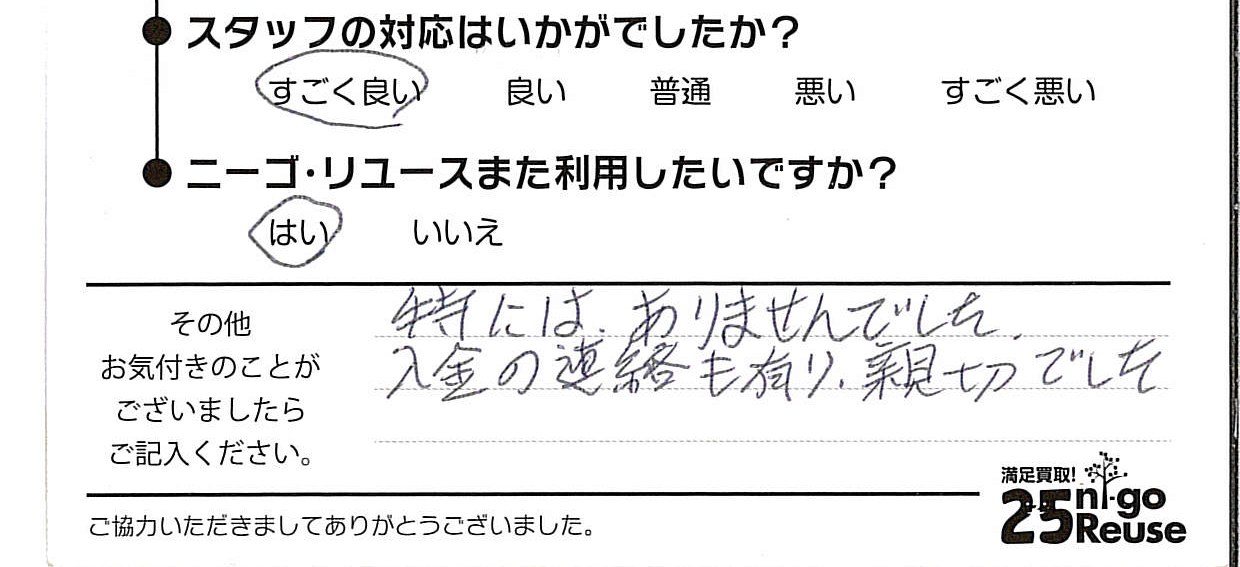 スタッフの対応はいかがでしたか？
すごく良い 良い 普通 悪い すごく悪い
ニーゴ・リユースまた利用したいですか？
はい いいえ
その他
お気付きのことが
ございましたら
ご記入ください。
特には、ありませんでした、
入金の連絡も有り、親切でした
満足買取!
25 ni-go
Reuse
ご協力いただきましてありがとうございました。